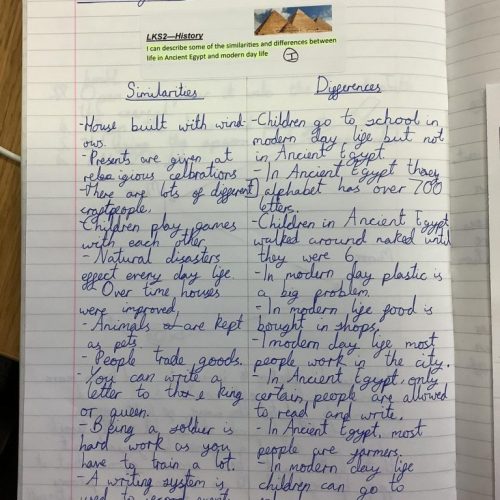 LKS2—History
I can describe some of the similarities and differences between
life in Ancient Egypt and modern day life
I
Similarities
-House built with wind-
ows.
-Presents are given at
releigious celebrations
-There are lots of different
craftpeople.
-Children play games
with each other.
- Natural disasters
effect every day life.
- Over time houses
were improved,
- Animals are kept
as pets.
- People trade goods.
- You can write a
letter to the king
or queen.
- Being a soldier is
hard work as you
have to train a lot.
- A writing system is
used to record events
Differences
-Children go to school in
modern day life but not
in Ancient Egypt.
-In Ancient Egypt they
alphabet has over 700
letters.
-Children in Ancient Egypt
walked around naked until
they were 6.
-In modern day plastic is
a big problem.
-In modern life food is
bought in shops.
-I modern day life, most
people work in the city.
- In Ancient Egypt, only
certain people are allowed
to read and write.
- In Ancient Egypt, most
people are farmers.
-In modern day life
children can go to